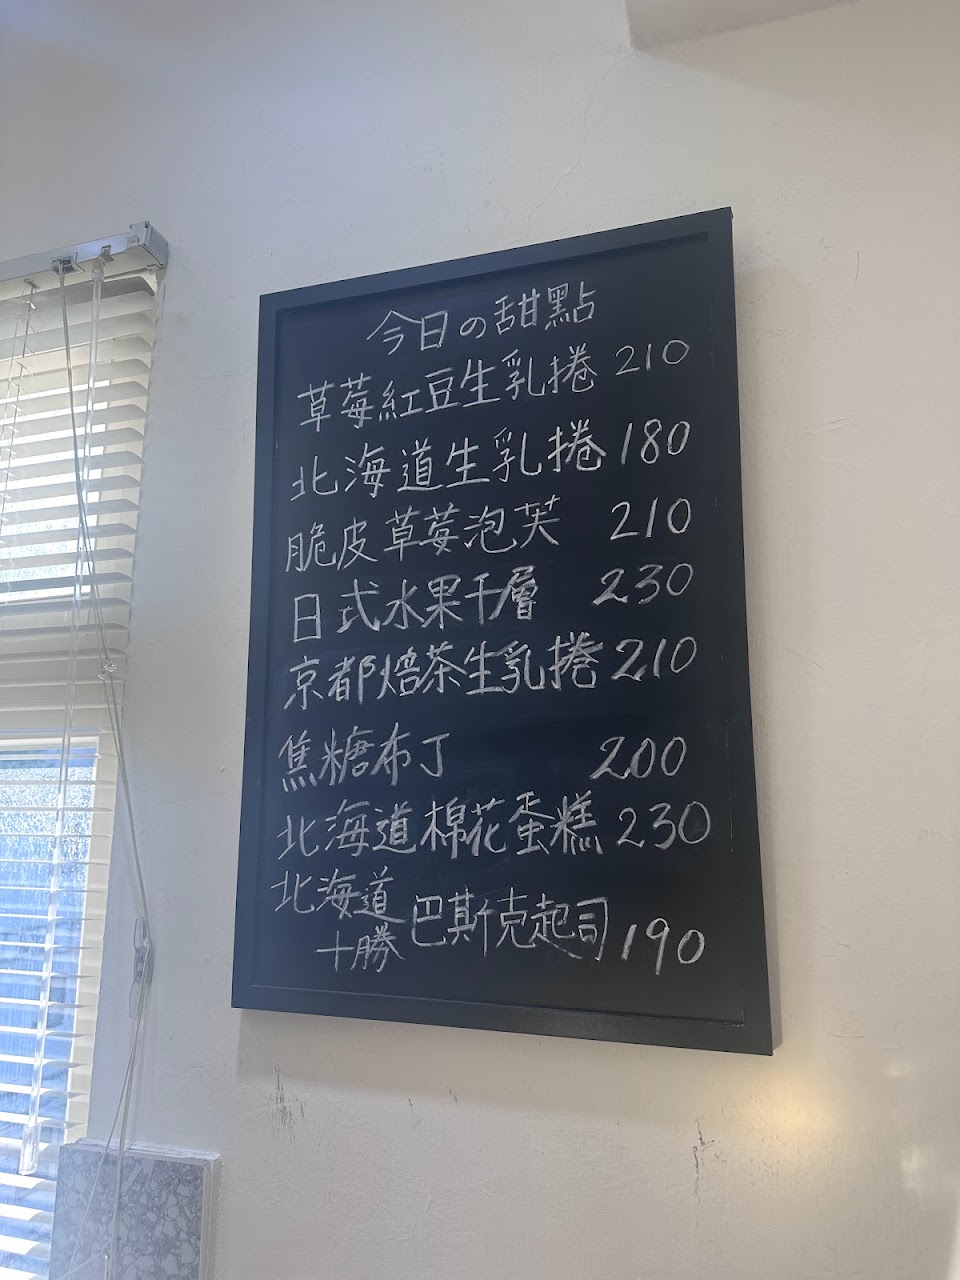 今日の甜點
草莓紅豆生乳捲 210
北海道生乳捲 180
脆皮草莓泡芙 210
日式水果千層 230
京都焙茶生乳捲 210
焦糖布丁 200
北海道棉花蛋糕 230
北海道
十勝 巴斯克起司 190